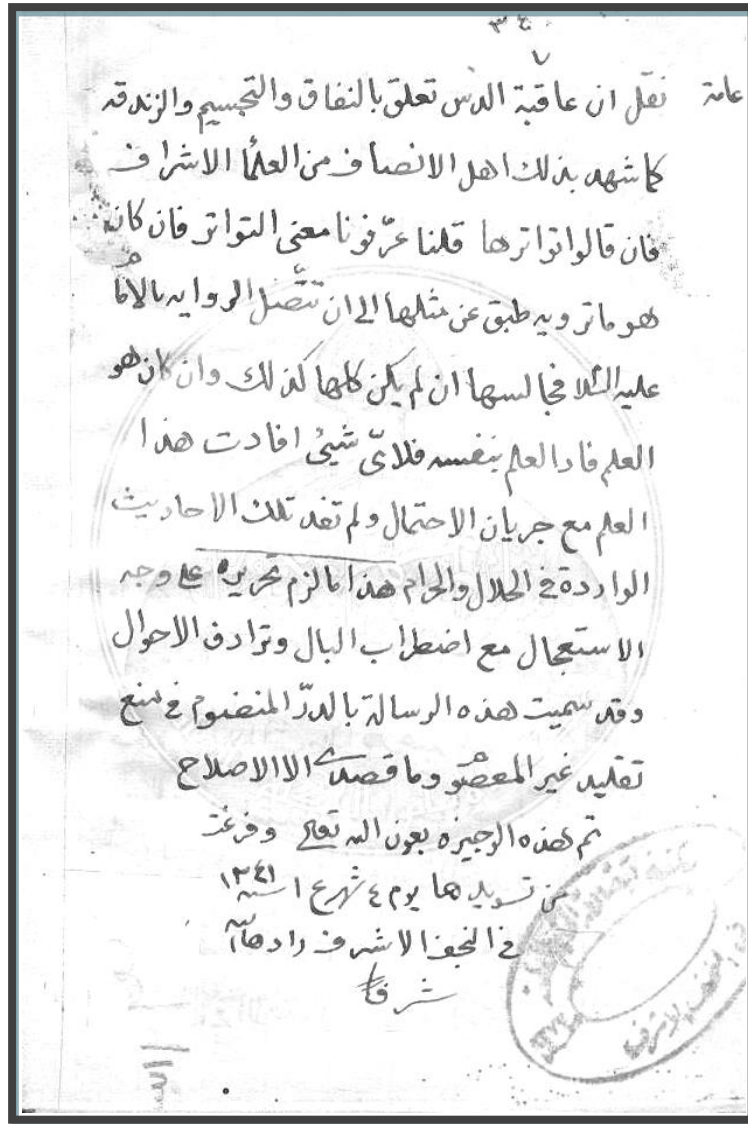 ٣٤
عامة نقل ان عاقبة الدس تعلق بالنفاق والتجسيم والزندقه
كما شهد بذلك اهل الانصاف من العلماا الاشراف
فان قالوا تواترها قلنا عرّفونا معنى التواتر فان كان
هو ما ترويه طبق عن مثلها الى ان تتّصل الروايه بالاما
عليه السّلا فجالسها ان لم يكن كلها كذلك وان كان هو
العلم فاد العلم بنفسه فلاىّ شيئ افادت هذا
العلم مع جريان الاحتمال ولم تفد تلك الاحاديث
الواردة في الحلال والحرام هذا ما لزم تحريره على وجه
الاستعجال مع اضطراب البال وترادف الاحوال
وقد سميت هذه الرسالة بالدرّ المنضوم في منع
تقليد غير المعصو وما قصدى الا الاصلاح
تم هذه الوجيزه بعون الله تعالى وفرغت
من تسويدها يوم ٤ شهر ع ١ سنه ١٣٤١
في النجف الاشرف زادها الله
شرفا